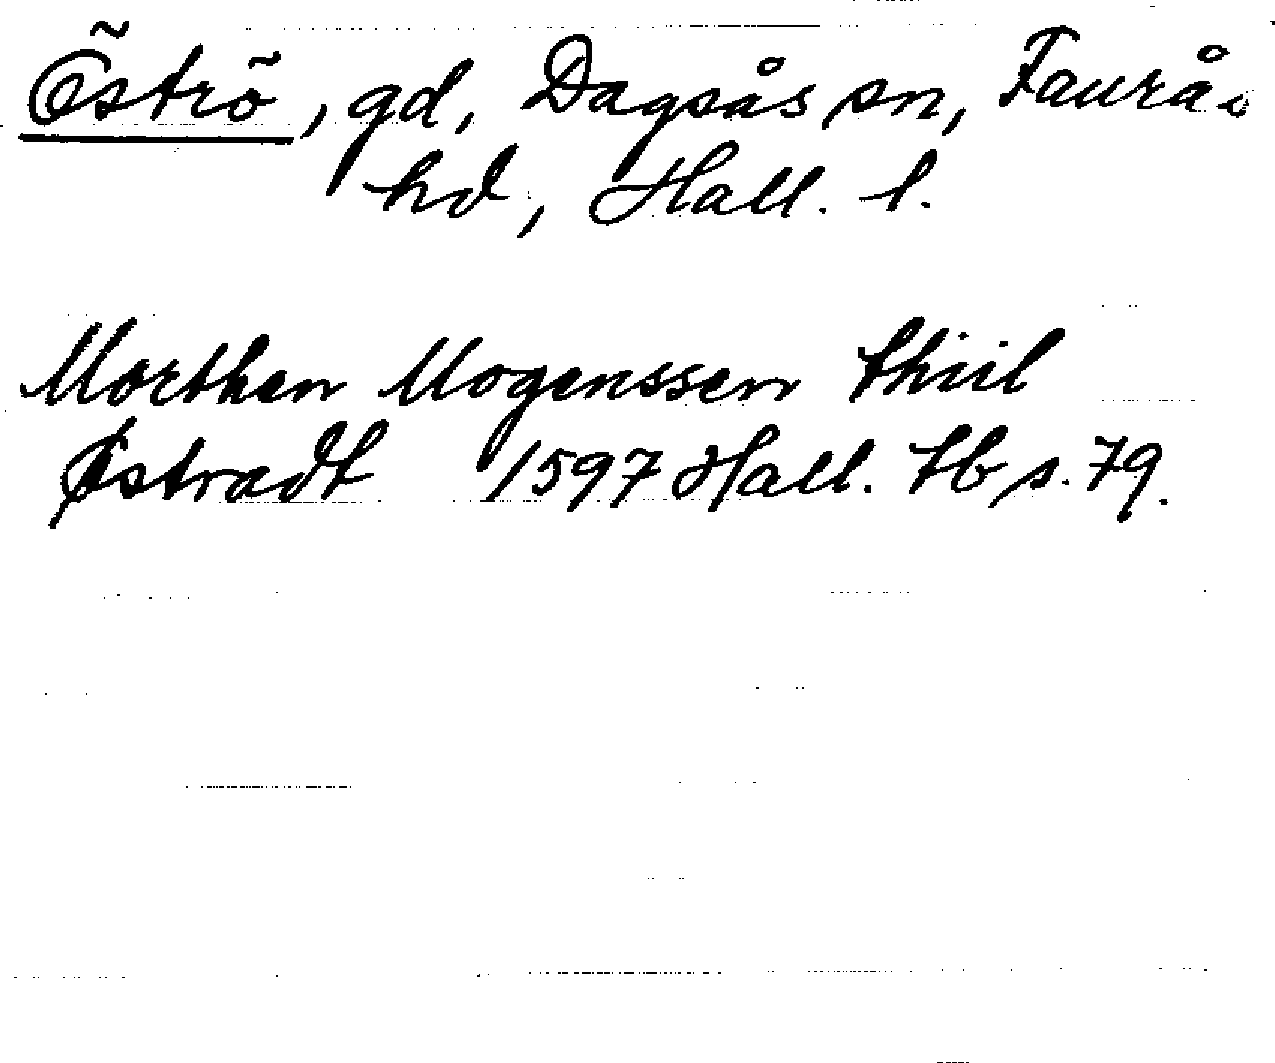 Öströ, gd, Dagsås sn, Faurås
hd, Hall. l.
Morthen Mogenssen thiil
Østradt 1597 Hall. tb s. 79.